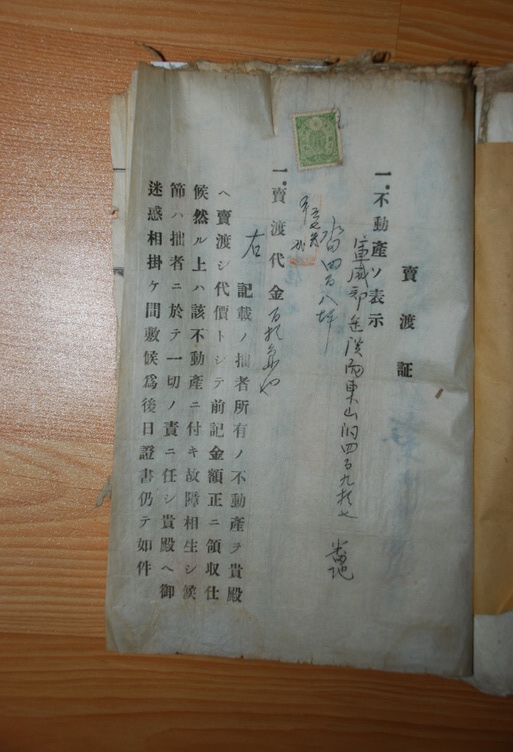 賣渡証
一、不動産ノ表示
軍威郡 面東山洞四百九拾七 番地
畓四百八坪
一、賣渡代金
右記載ノ拙者所有ノ不動産ヲ貴殿
ヘ賣渡シ代價トシテ前記金額正ニ領収仕
候然ル上ハ該不動産ニ付キ故障相生シ候
節ハ拙者ニ於テ一切ノ責ニ任シ貴殿ヘ御
迷惑相掛ケ間敷候爲後日證書仍テ如件